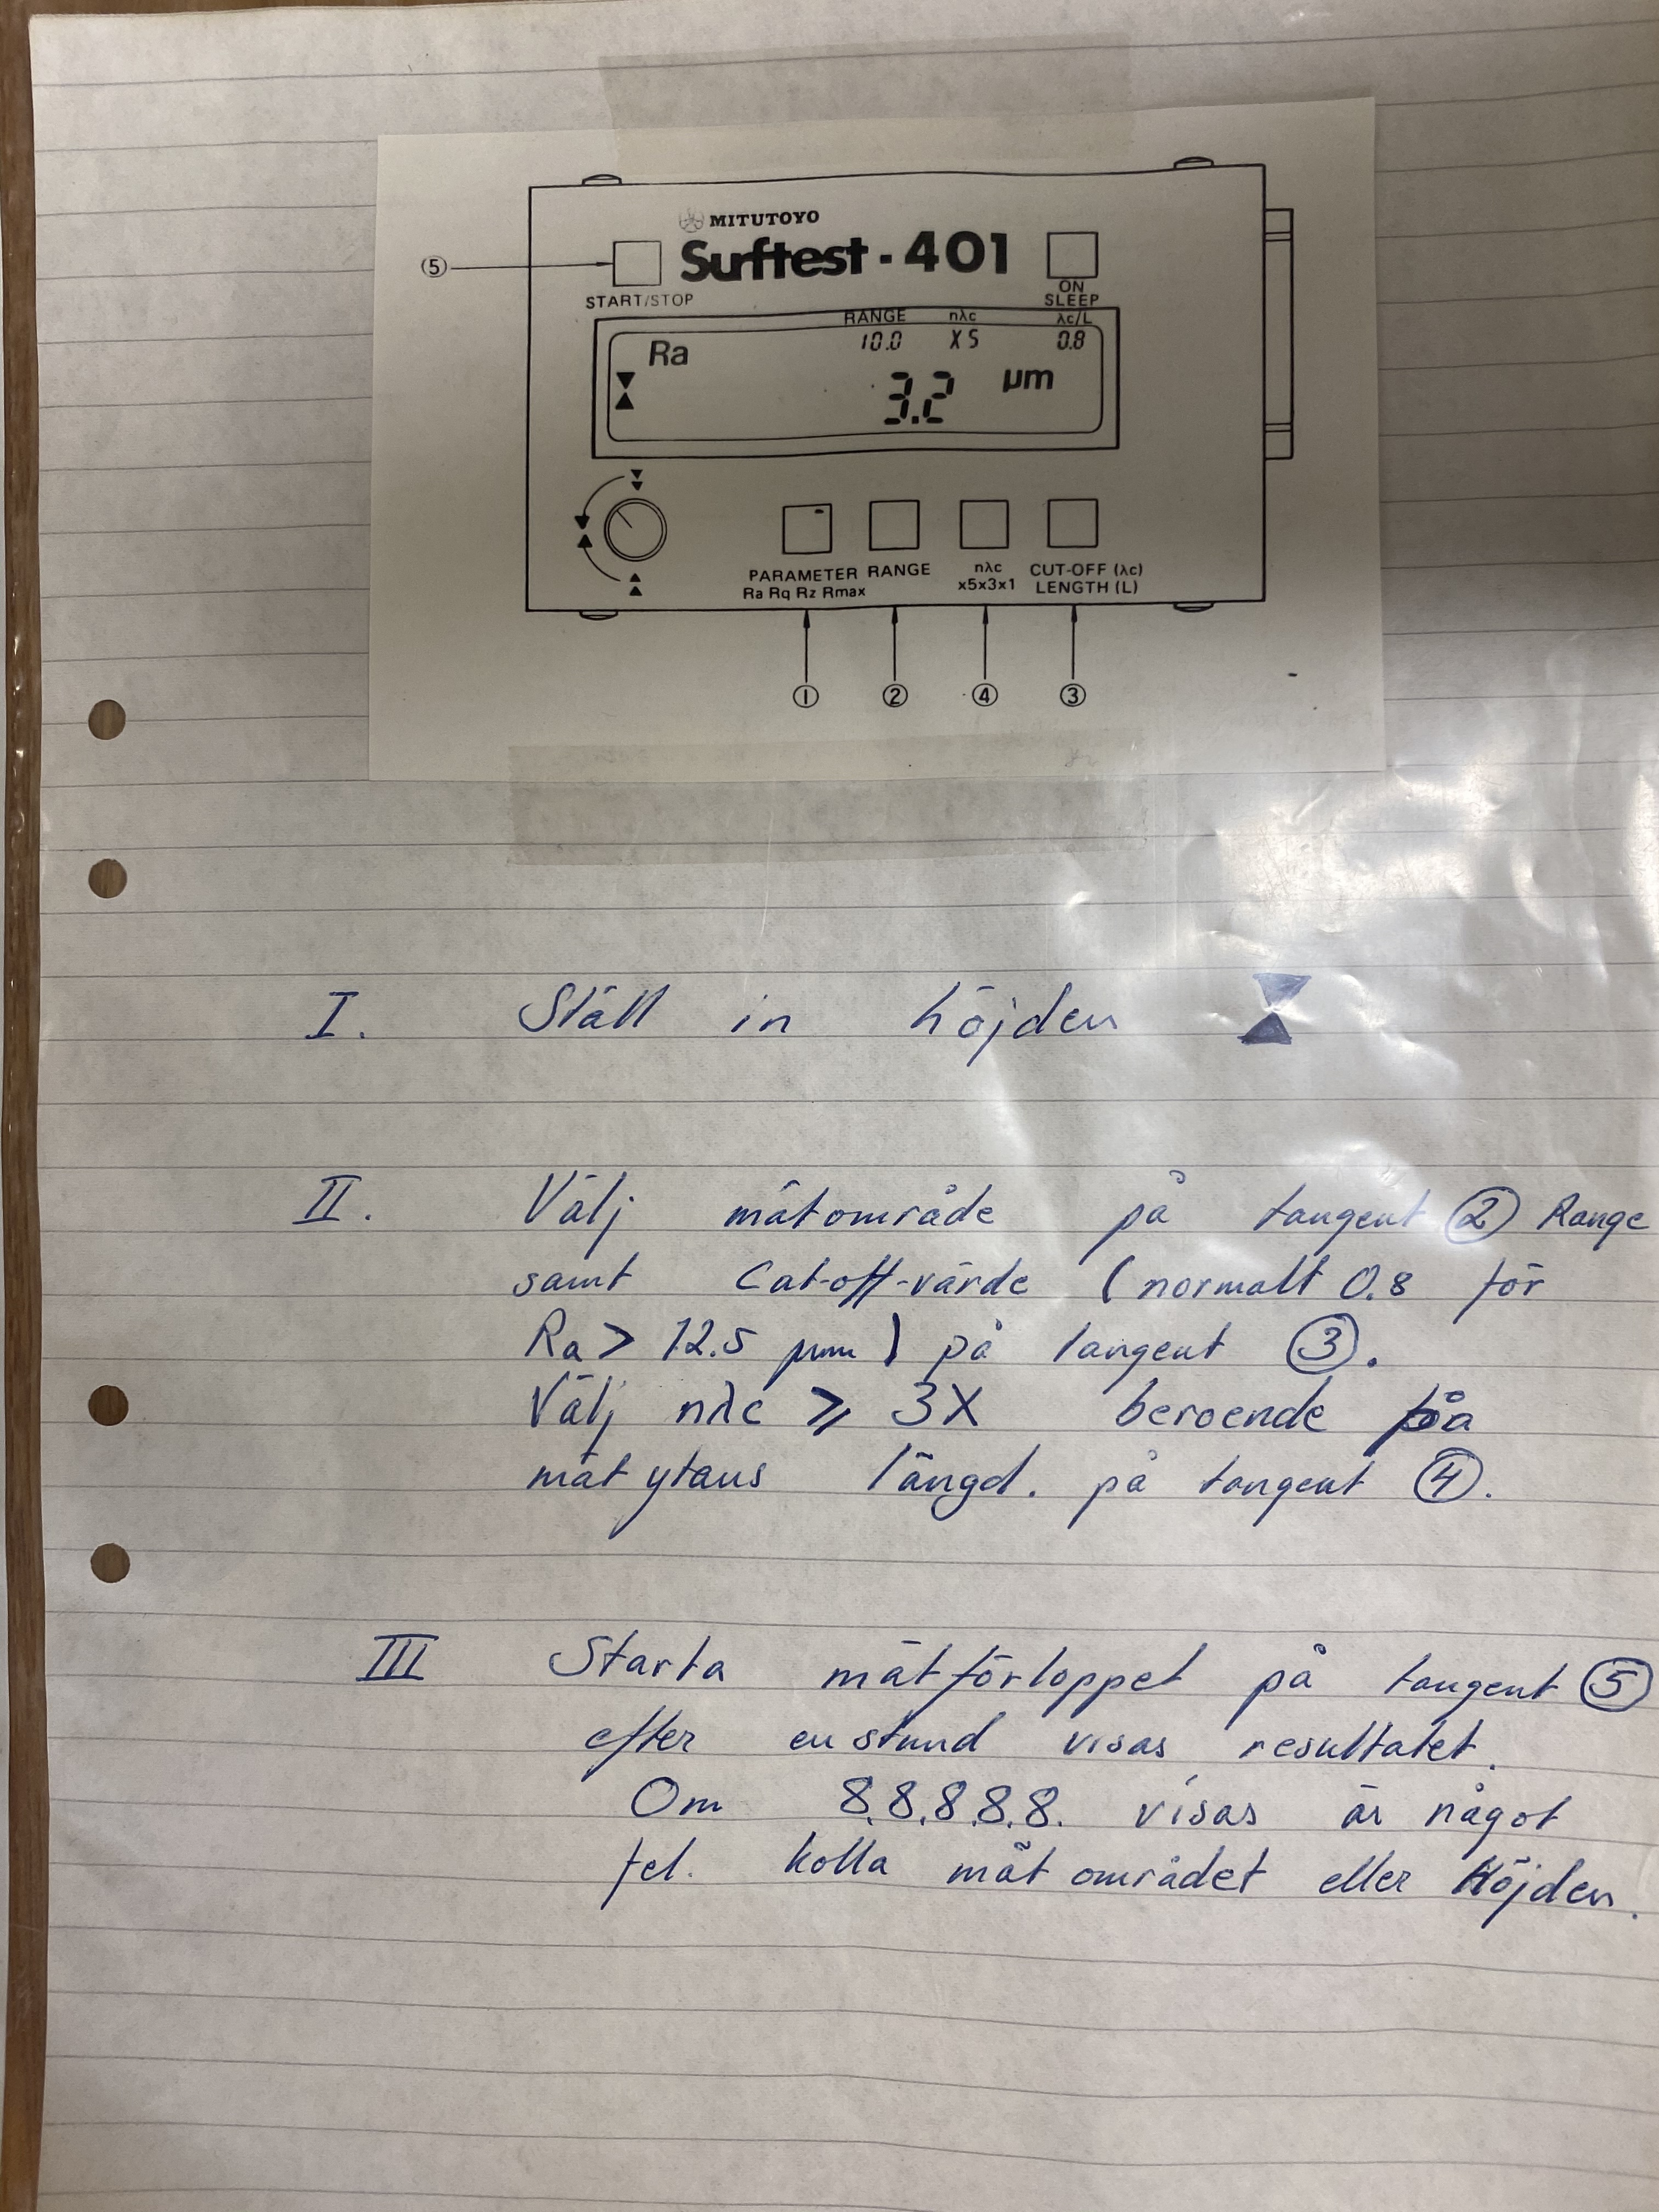 MITUTOYO
⑤ Surftest-401
START/STOP
ON
SLEEP
RANGE nλc λc/L
Ra 10.0 X5 0.8
3.2 µm
PARAMETER RANGE nλc CUT-OFF (λc)
Ra Rq Rz Rmax x5x3x1 LENGTH (L)
① ② ④ ③
I. Ställ in höjden
II. Välj mätområde på tangent ② Range
samt Cat-off-värde (normalt 0.8 för
Ra > 12.5 µm) på tangent ③.
Välj nλc ≥ 3X beroende på
mätytans längd. på tangent ④.
III Starta mätförloppet på tangent ⑤
efter en stund visas resultatet.
Om 8.8.8.8.8. visas är något
fel. kolla mätområdet eller Höjden.